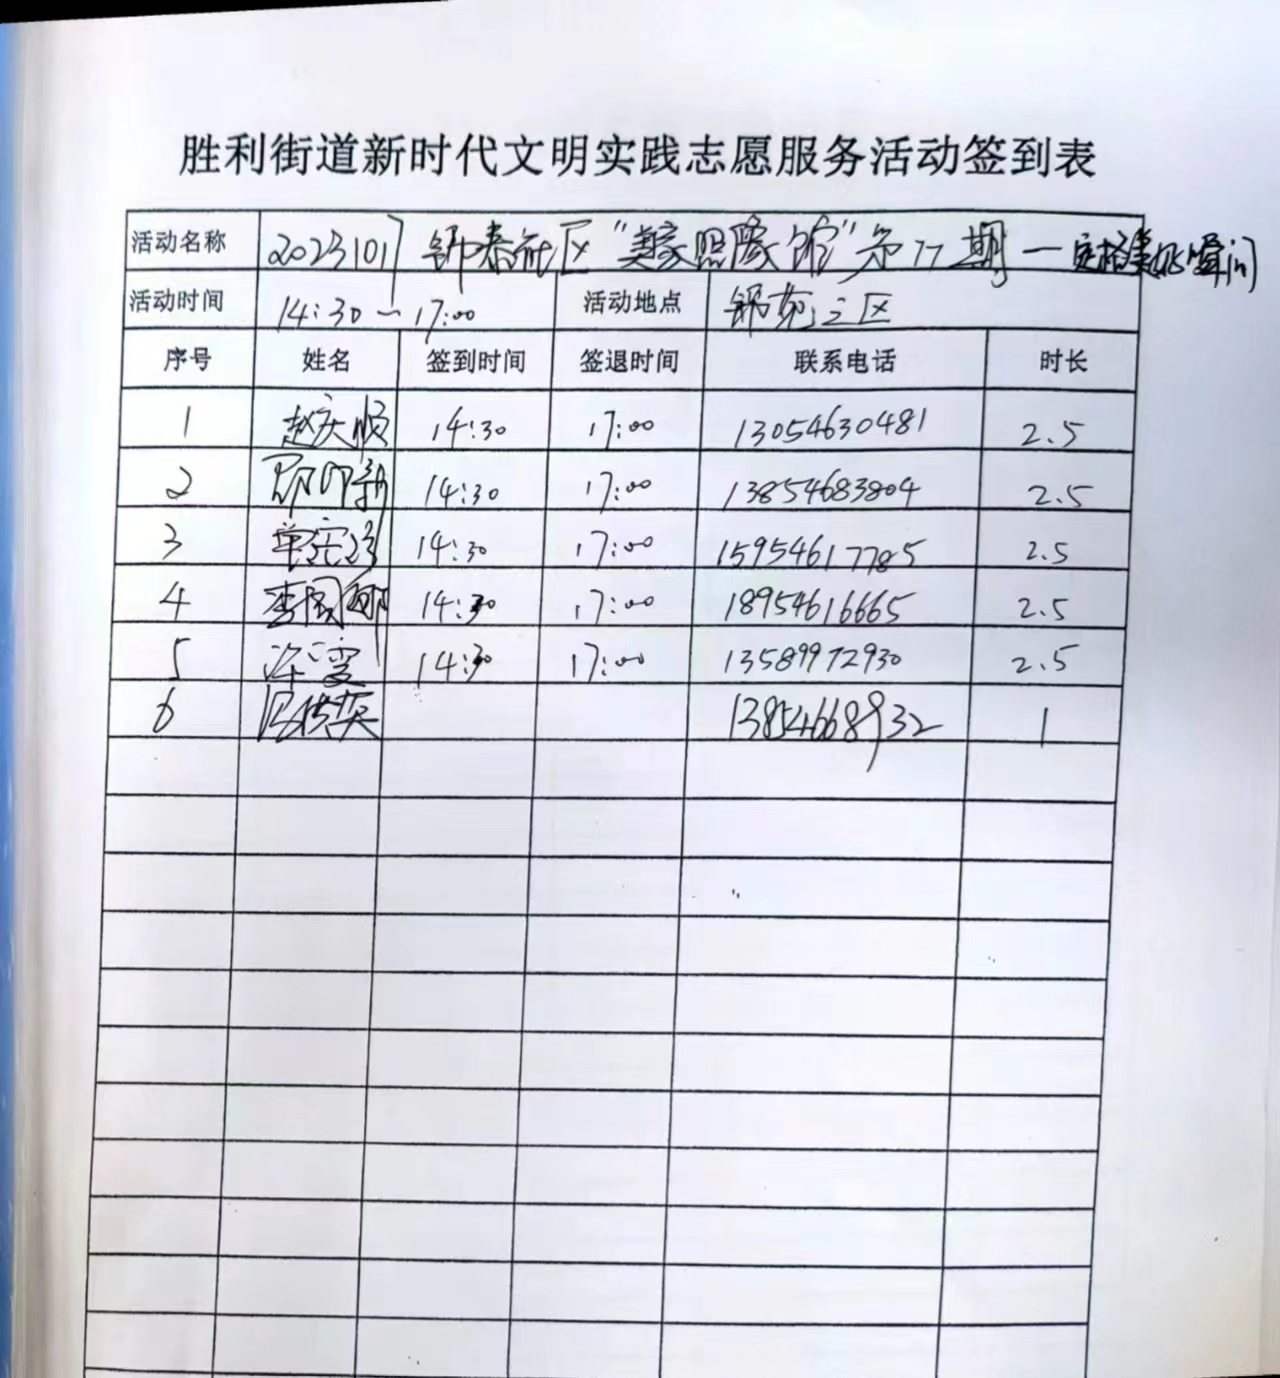 胜利街道新时代文明实践志愿服务活动签到表
活动名称 20231017 锦泰社区“美家照像馆”第17期一定格美好瞬间
活动时间 14:30-17:00 活动地点 锦苑三区
序号 姓名 签到时间 签退时间 联系电话 时长
1 赵庆顺 14:30 17:00 13054630481 2.5
2 14:30 17:00 13854683804 2.5
3 14:30 17:00 15954617785 2.5
4 李国 14:30 17:00 18954616665 2.5
5 14:30 17:00 13589972930 2.5
6 13854668932 1